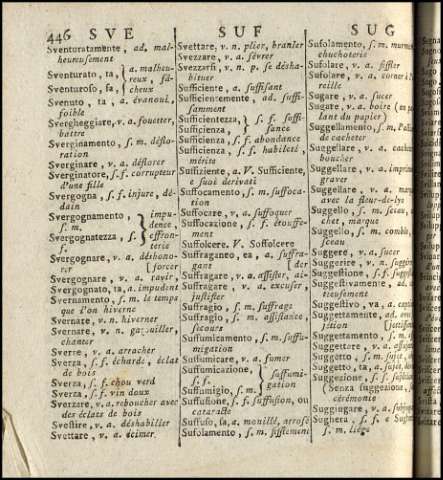 446 SVE SUF SUG
Sventuratamente, ad. mal-
heureusement
Sventurato, ta, a. malheu-
reux, fâ-
Sventuroso, sa, cheux
Svenuto, ta, a. évanoui,
foible
Svergheggiare, v. a. fouetter,
battre
Sverginamento, s. m. déflo-
ration
Sverginare, v. a. déflorer
Sverginatore, s. f. corrupteur
d'une fille
Svergogna, s. f. injure, dé-
dain
Svergognamento, impu-
s. m. dence,
Svergognatezza, s. effron-
f. terie
Svergognare, v. a. déshono-
rer [forcer
Svergognare, v. a. ravir,
Svergognato, ta, a. impudent
Svernamento, s. m. le temps
que d'on hiverne
Svernare, v. n. hiverner
Svernare, v. n. gazouiller,
chanter
Sverre, v. a. arracher
Sverza, s. f. écharde, éclat
de bois
Sverza, s. f. chou verd
Sverza, s. f. vin doux
Sverzare, v. a. reboucher avec
des éclats de bois
Svestire, v. a. déshabiller
Svettare, v. a. écimer.
Svettare, v. n. plier, branler
Svezzare, v. a. sévrer
Svezzarsi, v. n. p. se désha-
bituer
Sufficiente, a. suffisant
Sufficientemente, ad. suffi-
samment
Sufficientezza, s. f. suffi-
Sufficienza, sance
Sufficienza, s. f. abondance
Sufficienza, s. f. habileté,
mérite
Suffiziente, a. V. Sufficiente,
e suoi derivati
Suffocamento, s. m. suffoca-
tion
Suffocare, v. a. suffoquer
Suffocazione, s. f. étouffe-
ment
Suffolcere. V. Soffolcere
Suffraganeo, ea, a. suffra-
gant [der
Suffragare, v. a. assister, ai-
Suffragare, v. a. excuser,
justifier
Suffragio, s. m. suffrage
Suffragio, s. m. assistance,
secours
Suffumicamento, s. m. suffu-
migation
Suffumicare, v. a. fumer
Suffumicazione, suffumi-
s. f. gation
Suffumigio, s. m.
Suffusione, s. f. suffusion, ou
cataracte
Suffuso, sa, a. mouillé, arrosé
Sufolamento, s. m. sifflement
Sufolamento, s. m. murmu
chuchoterie
Sufolare, v. a. siffler
Sufolare, v. a. corner à l'
reille
Sugare, v. a. sucer
Sugare, v. a. boire (en par
lant du papier)
Suggellamento, s. m.
de cacheter
Suggellare, v. a. cach
boucher
Suggellare, v. a. impri
graver
Suggellare, v. a. mar
avec la fleur-de-lys
Suggello, s. m. sceau,
chet, marque
Suggello, s. m. comble,
sceau
Suggere, v. a. sucer
Suggerire, v. n. suggér
Suggestione, s. f. suggestion
Suggestivamente, ad.
tieusement
Suggestivo, va, a. captieux
Suggettamente, ad.
jétion
Suggettamento, s. m.
Suggettare, v. a. assuj
Suggetto, s. m. sujet,
Suggetto, ta, a. sujet,
Suggezione, s. f. sujétion
(Senza suggezione,
cérémonie
Suggiugare, v. a. subjug
Sughera, s. f. e Sughe
s. m. liège